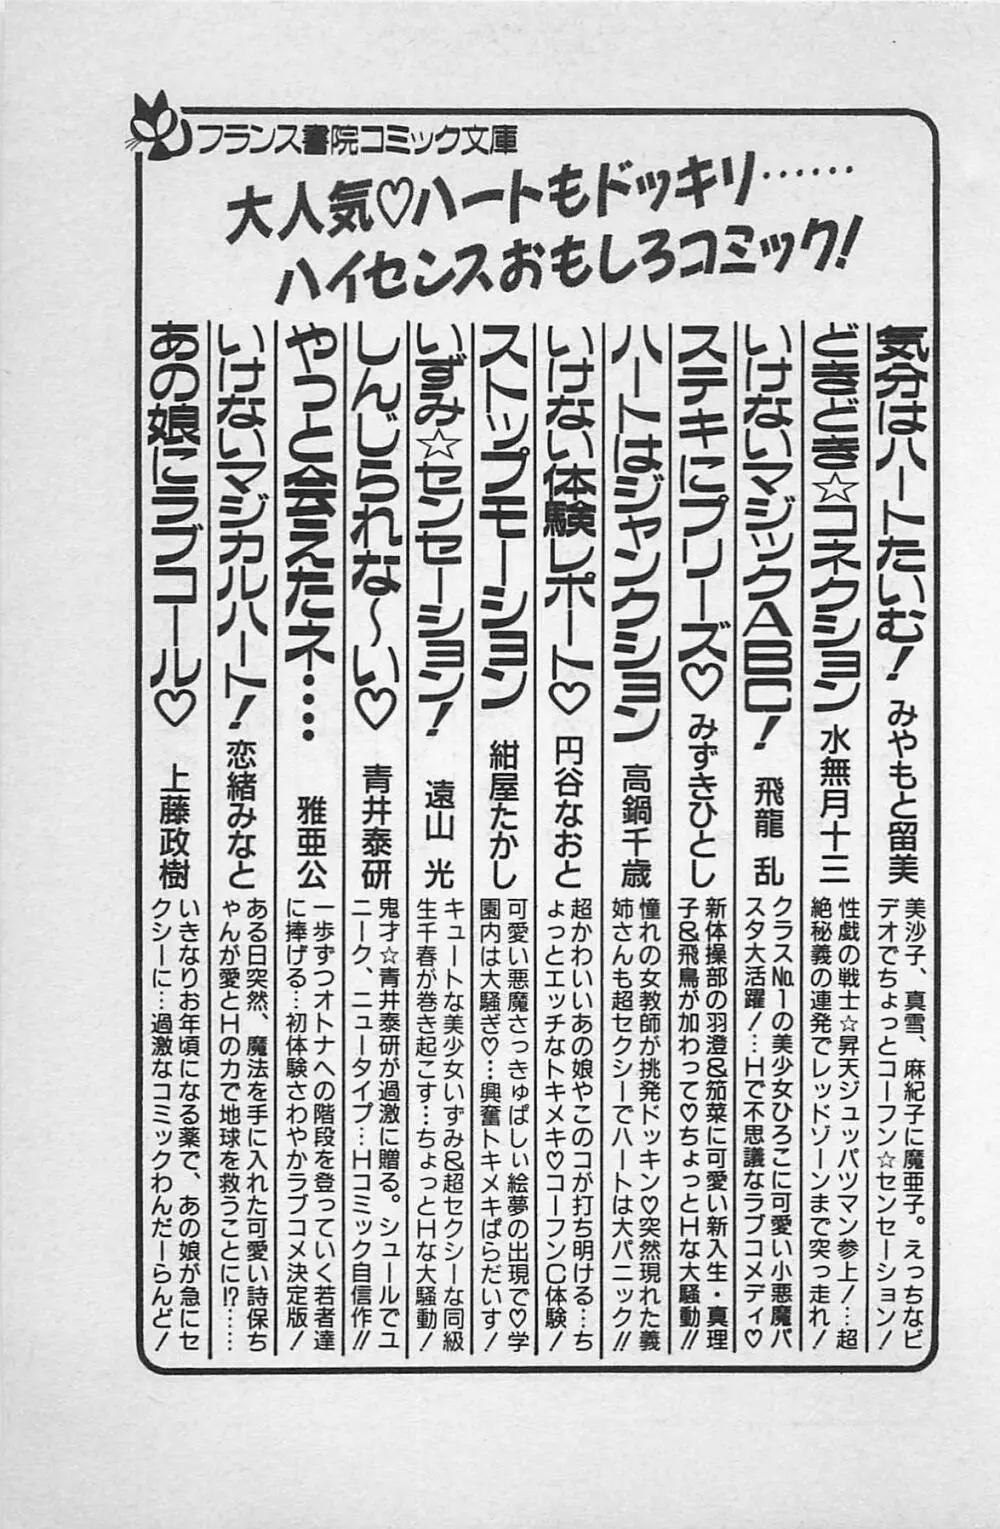 フランス書院コミック文庫
大人気♡ハートもドッキリ……
ハイセンスおもしろコミック!
気分はハートたいむ! みやもと留美
美沙子、真雪、麻紀子に魔亜子。えっちなビ
デオでちょっとコーフン☆センセーション!
どきどき☆コネクション 水無月十三
性戯の戦士☆昇天ジュッパツマン参上!…超
絶秘義の連発でレッドゾーンまで突っ走れ!
いけないマジックABC! 飛龍 乱
クラス№1の美少女ひろこに可愛い小悪魔パ
スタ大活躍!…Hで不思議なラブコメディ♡
ステキにプリーズ♡ みずきひとし
新体操部の羽澄&茄菜に可愛い新入生・真理
子&飛鳥が加わって♡ちょっとHな大騒動!!
ハートはジャンクション 高鍋千歳
憧れの女教師が挑発ドッキン♡突然現れた義
姉さんも超セクシーでハートは大パニック!!
いけない体験レポート♡ 円谷なおと
超かわいいあの娘やこのコが打ち明ける…ち
ょっとエッチなトキメキ♡コーフンC体験!
ストップモーション 紺屋たかし
可愛い悪魔さっきゅばしい絵夢の出現で♡学
園内は大騒ぎ♡…興奮トキメキぱらだいす!
いずみ☆センセーション! 遠山 光
キュートな美少女いずみ&超セクシーな同級
生千春が巻き起こす…ちょっとHな大騒動!
しんじられな〜い♡ 青井泰研
鬼才☆青井泰研が過激に贈る。シュールでユ
ニーク、ニュータイプ…Hコミック自信作!!
やっと会えたネ…‥ 雅亜公
一歩ずつオトナへの階段を登っていく若者達
に捧げる…初体験さわやかラブコメ決定版!
いけないマジカルハート! 恋緒みなと
ある日突然、魔法を手に入れた可愛い詩保ち
ゃんが愛とHの力で地球を救うことに!?……
あの娘にラブコール♡ 上藤政樹
いきなりお年頃になる薬で、あの娘が急にセ
クシーに…過激なコミックわんだーらんど!